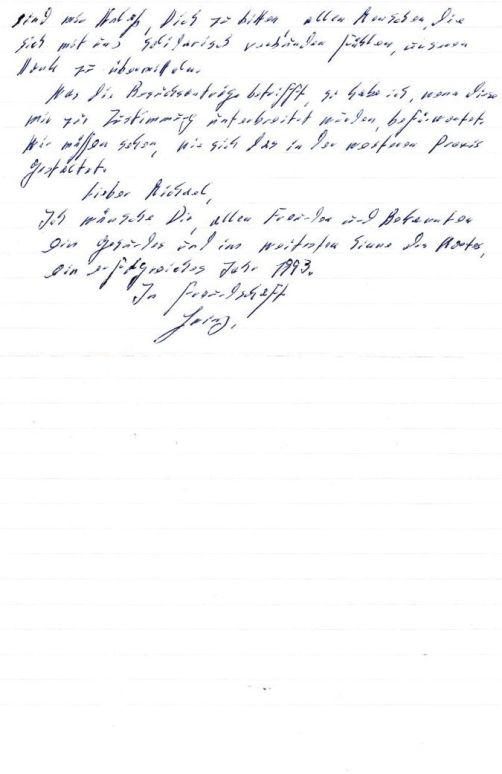 sind mir Anlaß, Dich zu bitten, allen Menschen, die
sich mit uns solidarisch verbunden fühlen, unseren
Dank zu übermitteln.
Was die Besuchsanträge betrifft, so habe ich, wenn diese
mir zur Zustimmung unterbreitet wurden, befürwortet.
Wir müssen sehen, wie sich das in der weiteren Praxis
gestaltet.
Lieber Michael,
Ich wünsche Dir, allen Freunden und Bekannten
ein gesundes und im weitesten Sinne des Wortes,
ein erfolgreiches Jahr 1993.
In Freundschaft